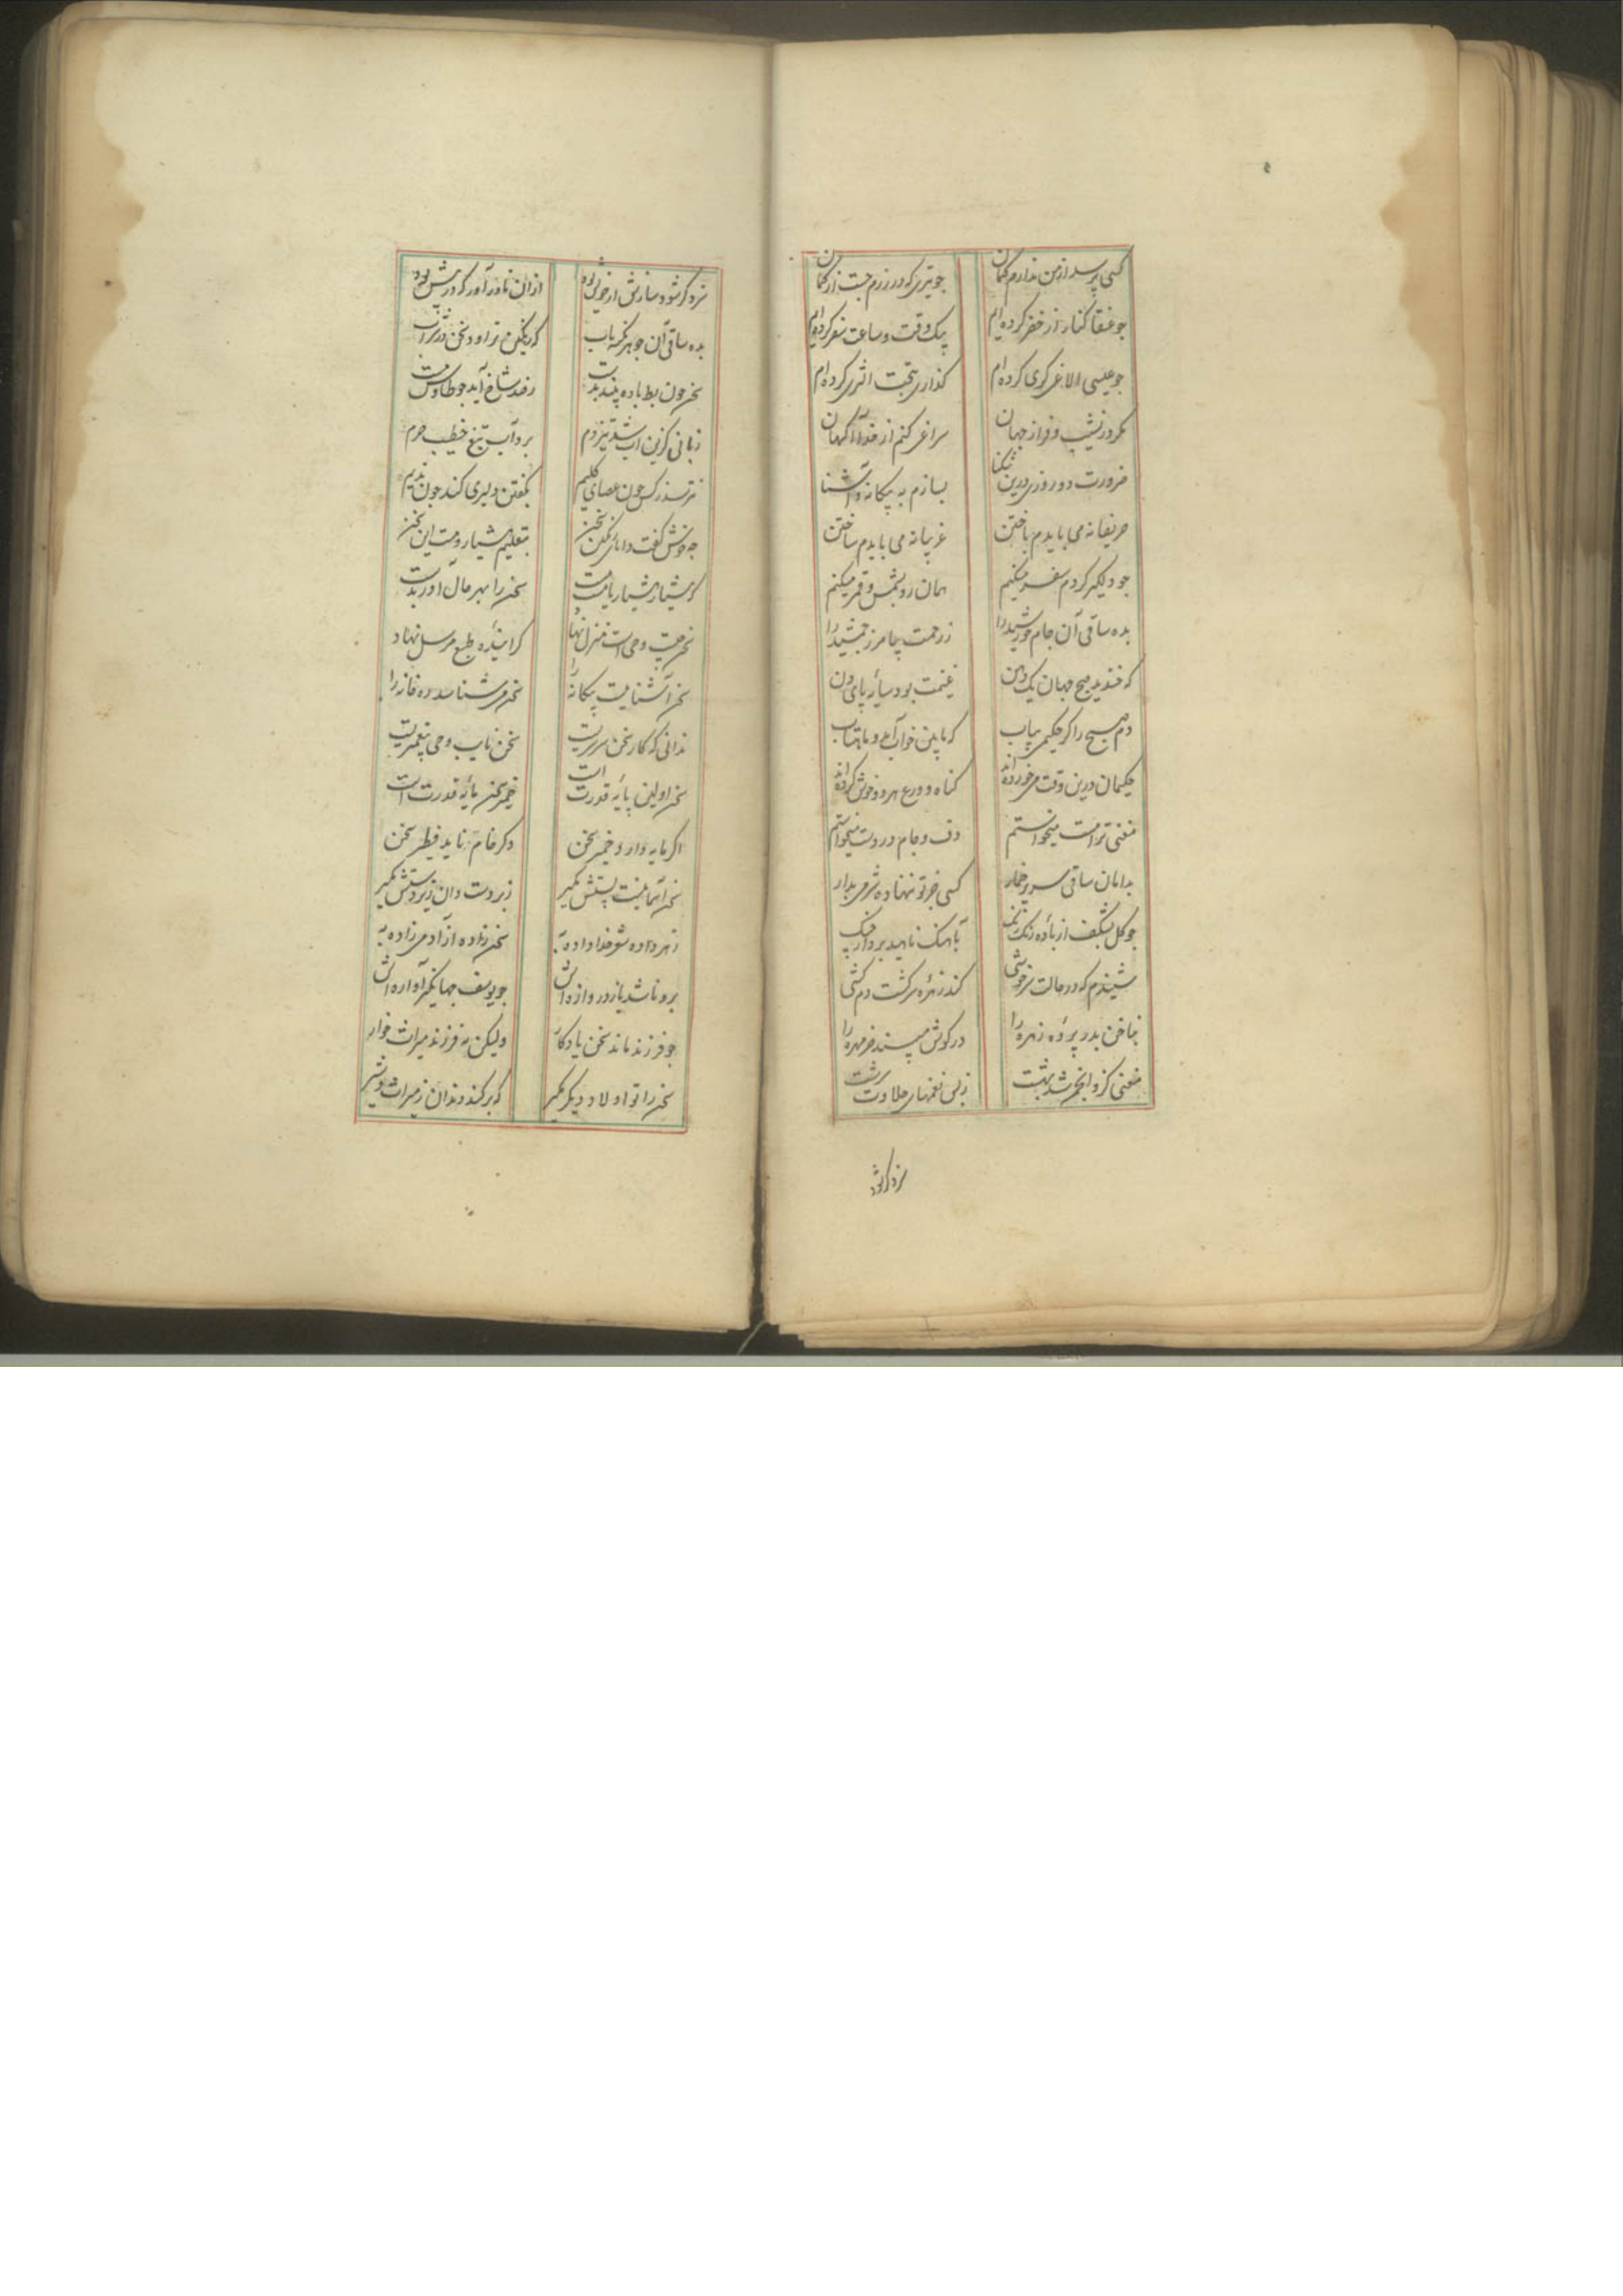 کسی پرسد از من ندارم کمان جو تیری که در رزم جست از کمان
جو عنقا کنار از خضر کرده ام بیک وقت و ساعت سفر کرده ام
جو عیسی الاغر کری کرده ام کذاری بتخت اثری کرده ام
مکر در نشیب و فراز جهان سراغی کنم از خداآکهان
ضرورت دو روزی درین تنکنا بسازم به بیکانه و آشنا
حریفانه می بایدم باختن غریبانه می بایدم ساختن
جو دلکیر کردم سفر میکنم همان رو بشمس و قمر میکنم
بده ساقی آن جام خورشید را زرحمت جمشید را
که خندید صبح جهان یک دهن غنیمت بود سایه پای دن
دم صبح را کر حکیمی بیاب که این خواب و ماهتاب
حکیمان درین وقت می خورده اند کناه و ورع هر دو خوش کرده اند
مغنی ترا مست میخواستم دف و جام در دست میخواستم
بدامان ساقی سر پر خمار کسی جز تو ننهاده شرمی بدار
جو کل بشکف از باده رنک رنک بآهنک ناهید بردار جنک
شنیدم که در حالت سرخوشی کند زهره سرکشت دم کشی
بناخن بدر پرده زهره را در کوش مپسند خرمهره را
مغنی کزو انجمن شد بهشت زبس نغمهای حلاوت سرشت
نزد کر شود
نزد کر شود سازش از خویش بود ازان نادر آور که در پیش بود
بده ساقی آن جوهر نکته یاب که رنکین تراود سخن در شراب
سخن جون بط باده پنبد بدست رصد شاخ آید جو طاوس مست
زبانی کزین آب شد تیزدم برد آب تیغ خطیب حرم
نترسد ز کس جون عصای کلیم بکفتن دلیری کند جون ندیم
جه خوش کفت دانای رنکین سخن بتعلیم هشیار و مست این سخن
که هشیار هشیار یا مست مست سخن را بهر حال آور بدست
سخن جیست وحی است منزل نهاد کراینده طبع مرسل نهاد
سخن آشناییست بیکانه را سخن می شناسد ره خانه را
ندانی که کار سخن سرسریست سخن نایب وحی پیغمبریست
سخن اولین پایه قدرت است خمیر سخن مایه قدرت است
اکر مایه دارد خمیر سخن وکر خام ناید فطیر سخن
سخن آسمانیست پستش مکیر زبردست دان زیردستش مکیر
زهر داده شو خداداده به سخن زاده از آدمی زاده به
برو باشد باز دروازه اش جو یوسف جهانکیر آوازه اش
جو فرزند ماند سخن یادکار ولیکن نه فرزند میراث خوار
سخن را تو اولاد دیکر مکیر که بر کند دندان ز میراث و شیر